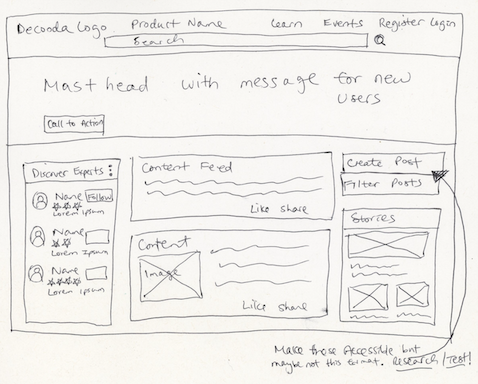 Decooda Logo Product Name Learn Events Register Login
Search
Mast head with message for new
users
Call to Action
Discover Experts
Name Follow
Lorem Ipsum
Name
Lorem Ipsum
Name
Lorem Ipsum
Content Feed
Like Share
Content
Image
Like Share
Create Post
Filter Posts
Stories
Make these Accessible but
maybe not this format. Research/Test!